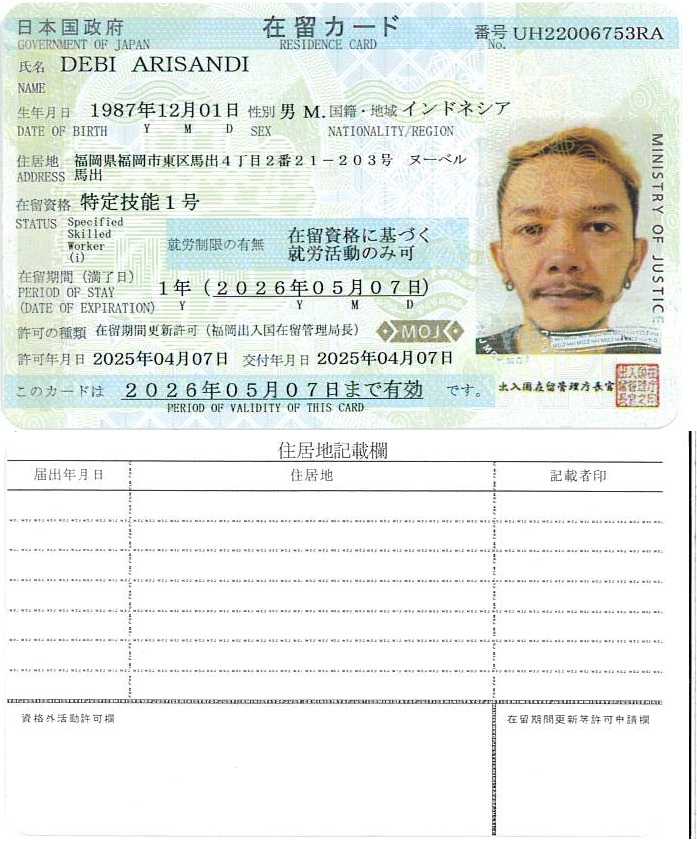 日本国政府 在留カード 番号 UH22006753RA
GOVERNMENT OF JAPAN RESIDENCE CARD No.
氏名 DEBI ARISANDI
NAME
生年月日 1987年12月01日 性別 男 M. 国籍・地域 インドネシア
DATE OF BIRTH Y M D SEX NATIONALITY/REGION
住居地 福岡県福岡市東区馬出4丁目2番21-203号 ヌーベル
ADDRESS 馬出
在留資格 特定技能1号
STATUS Specified
Skilled
Worker
(i)
就労制限の有無 在留資格に基づく
就労活動のみ可
在留期間(満了日) 1年(2026年05月07日)
PERIOD OF STAY
(DATE OF EXPIRATION) Y Y M D
許可の種類 在留期間更新許可(福岡出入国在留管理局長) MOJ
許可年月日 2025年04月07日 交付年月日 2025年04月07日
このカードは 2026年05月07日まで有効 です。
PERIOD OF VALIDITY OF THIS CARD
MINISTRY OF JUSTICE
出入国在留管理庁長官
住居地記載欄
届出年月日 住居地 記載者印
資格外活動許可欄 在留期間更新等許可申請欄